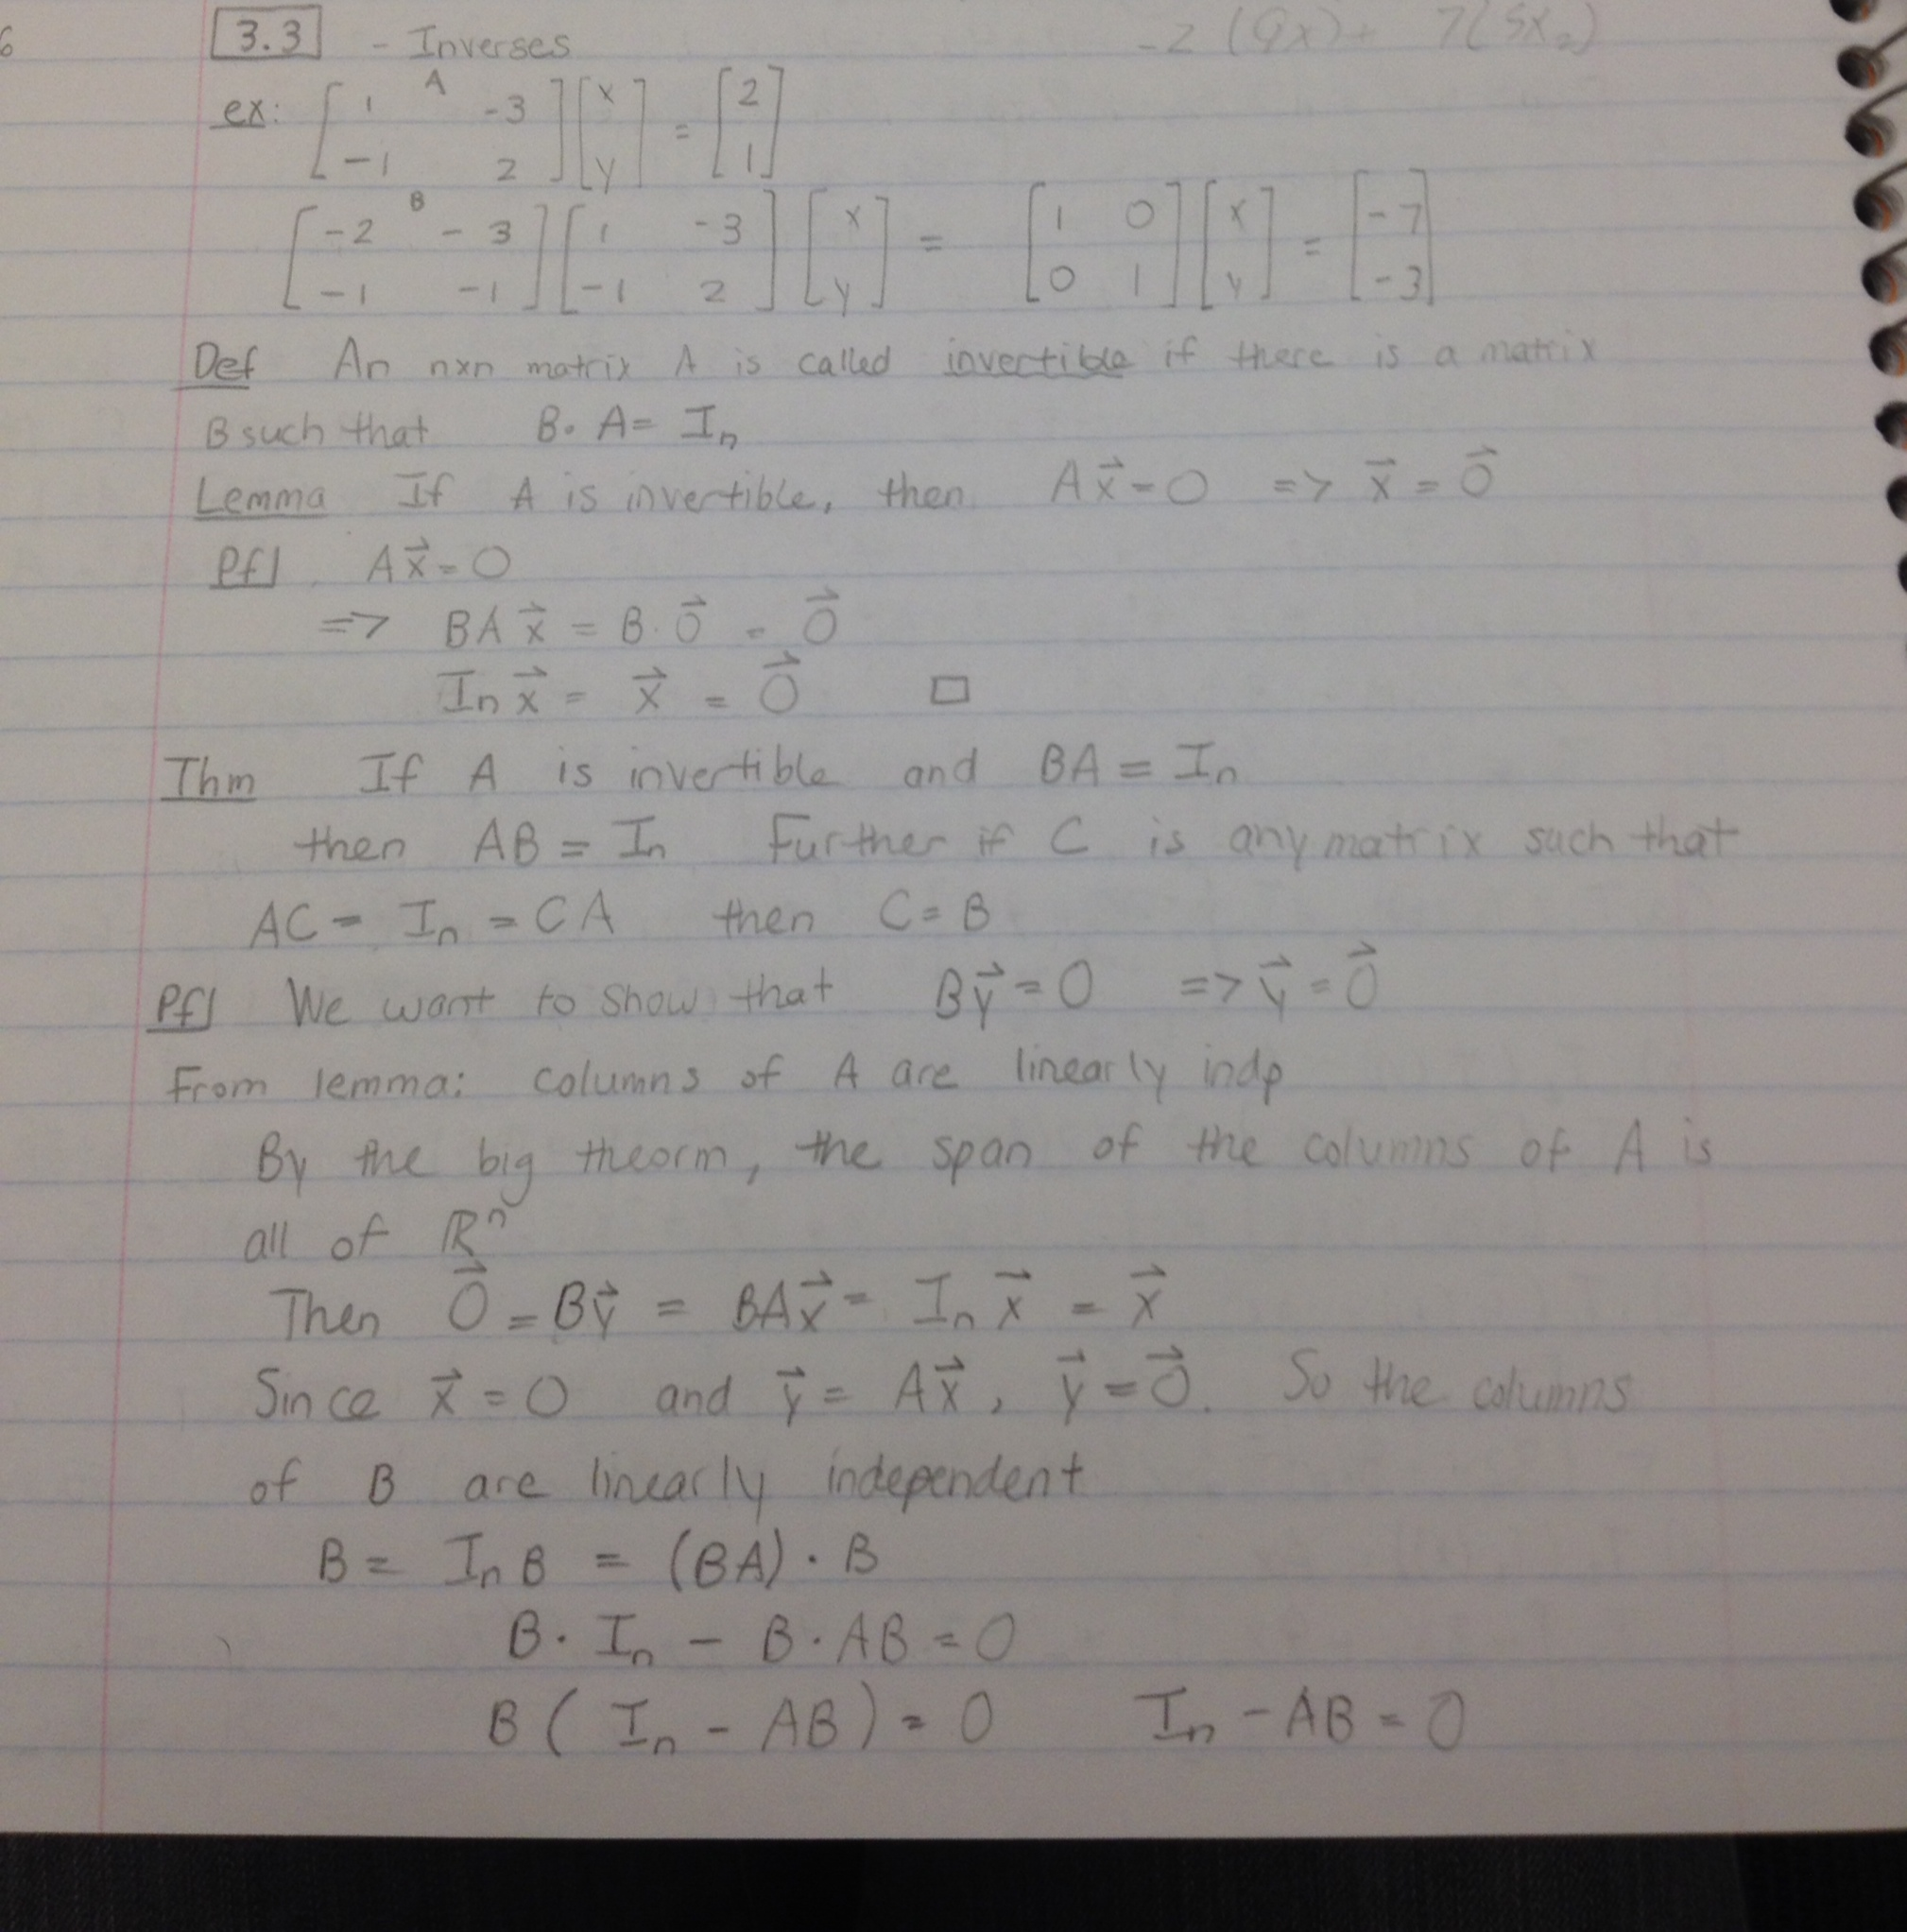 6
3.3 - Inverses
-2 (9x) + 7(5x₂)
ex: [1 -3; -1 2] A [x; y] = [2; 1]
[-2 -3; -1 -1] B [1 -3; -1 2] [x; y] = [1 0; 0 1] [x; y] = [-7; -3]
Def An nxn matrix A is called invertible if there is a matrix
B such that B · A = Iₙ
Lemma If A is invertible, then Ax⃗ = 0 => x⃗ = 0⃗
Pf| Ax⃗ = 0
=> BAx⃗ = B · 0⃗ = 0⃗
Iₙx⃗ = x⃗ = 0⃗ □
Thm If A is invertible and BA = Iₙ
then AB = Iₙ Further if C is any matrix such that
AC = Iₙ = CA then C = B
Pf| We want to show that By⃗ = 0 => y⃗ = 0⃗
From lemma: columns of A are linearly indp
By the big theorm, the span of the columns of A is
all of ℝⁿ
Then 0⃗ = By⃗ = BAx⃗ = Iₙx⃗ = x⃗
Since x⃗ = 0 and y⃗ = Ax⃗, y⃗ = 0⃗. So the columns
of B are linearly independent
B = IₙB = (BA) · B
B · Iₙ - B · AB = 0
B(Iₙ - AB) = 0 Iₙ - AB = 0